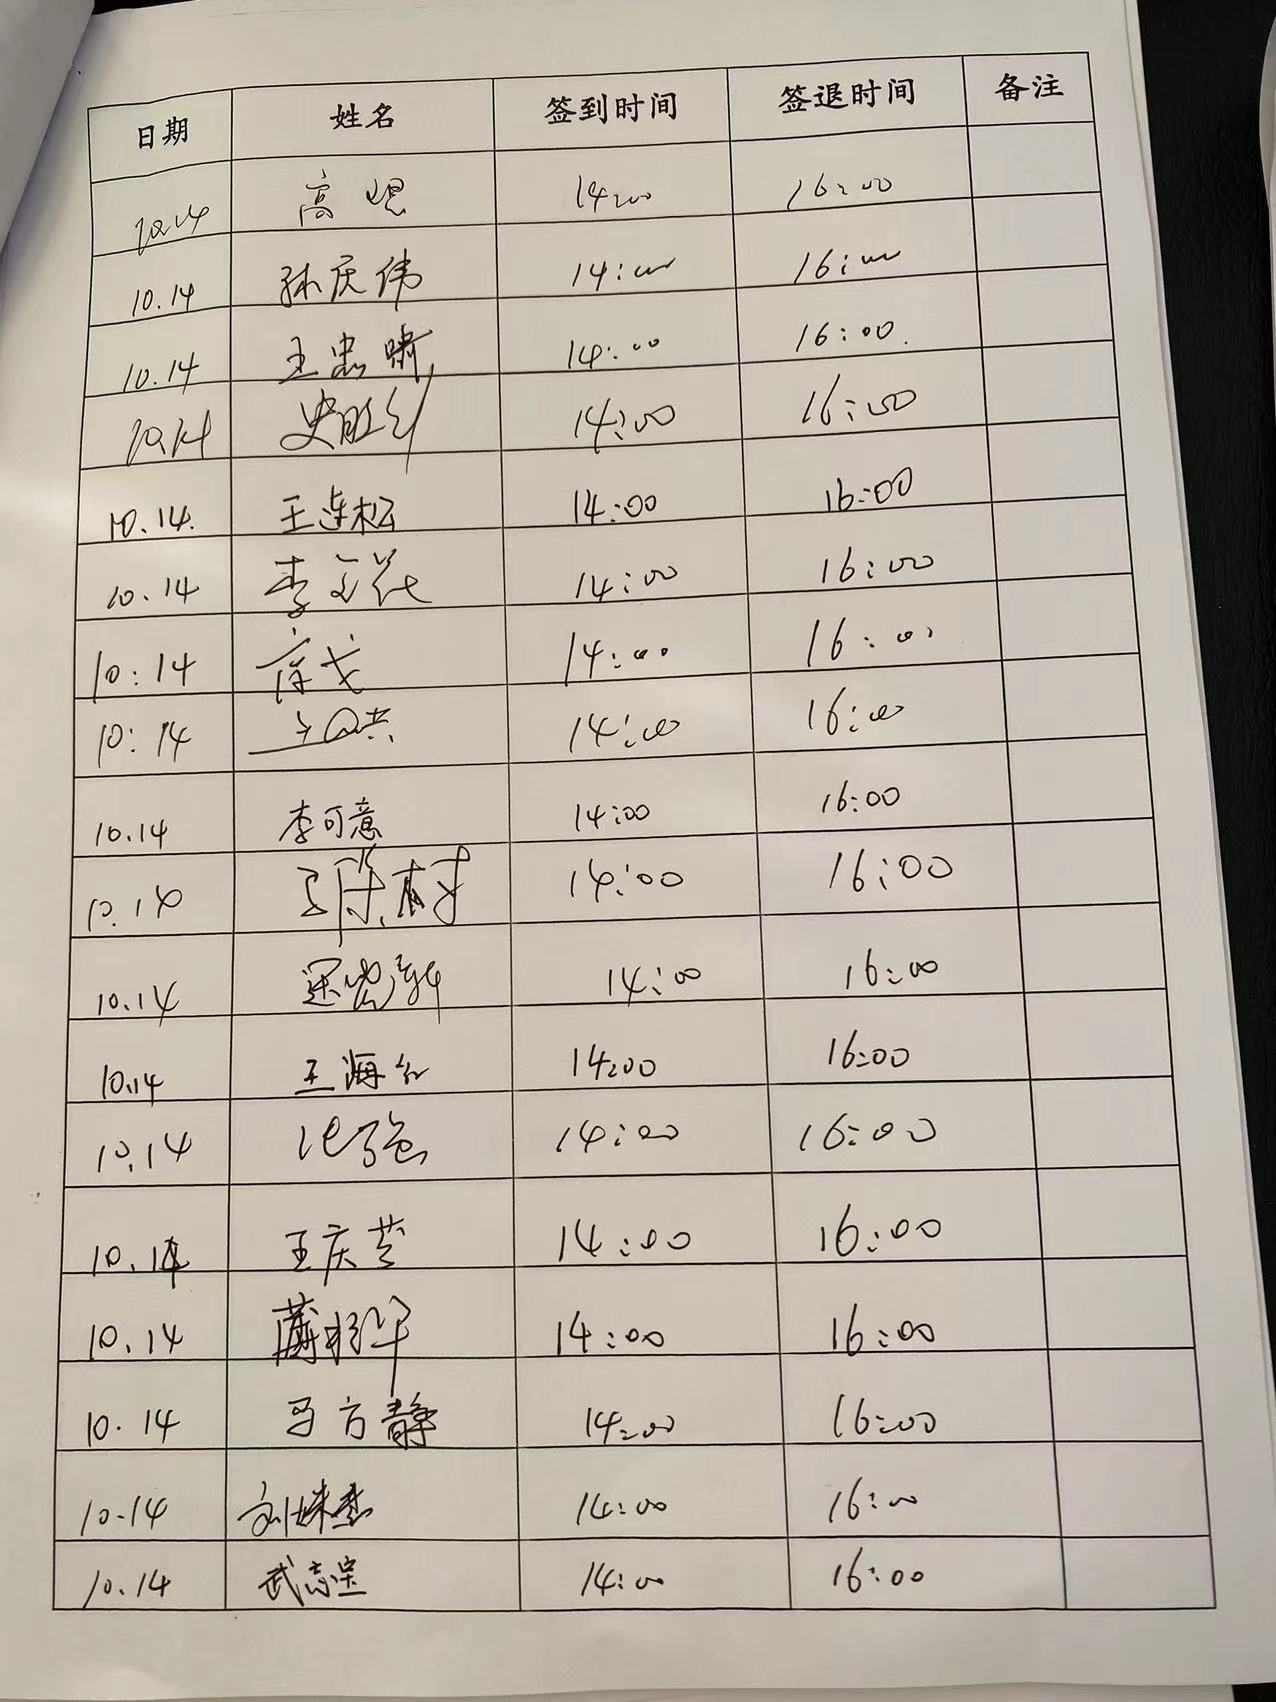 日期 姓名 签到时间 签退时间 备注
10.14 高 14:00 16:00
10.14 孙庆伟 14:00 16:00
10.14 王忠啸 14:00 16:00
10.14 史 14:00 16:00
10.14. 王连松 14:00 16:00
10.14 李 14:00 16:00
10:14 14:00 16:00
10:14 14:00 16:00
10.14 李可意 14:00 16:00
10.14 14:00 16:00
10.14 14:00 16:00
10.14 王海红 14:00 16:00
10.14 14:00 16:00
10.14 王庆芝 14:00 16:00
10.14 14:00 16:00
10.14 马方静 14:00 16:00
10.14 刘 14:00 16:00
10.14 武志宝 14:00 16:00